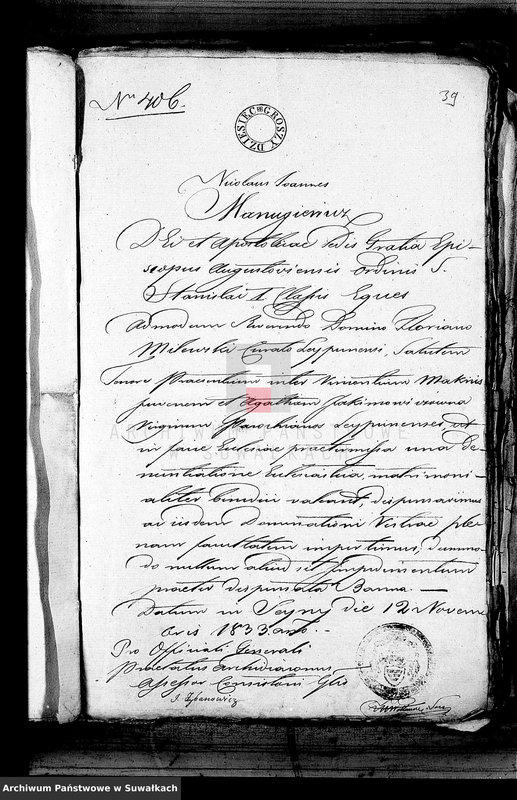 Nr 406.
39
DZIESIĘĆ GROSZY
Nicolaus Joannes
Manugiewicz
DEi et Apostolicae Sedis Gratia Epi-
scopus Augustoviensis Ordinis S.
Stanislai I Classis Eques
Admodum Rvrendo Domino Floriano
Milewski Curato Leypunensi, Salutem
Tenore Praesentium inter Vincentium
juvenem et Agatham Jakimowiczowna
Virginem Parochianos Leypunenses, ut
in facie Ecclesiae praemissa una De-
nunciatione Ecclesiastica matrimoni-
aliter benedici valeant, dispensavimus
ac iisdem Dominationi Vestrae ple-
nam facultatem impertimus, dummo-
do nullum aliud sit Impedimentum
praeter dispensata Banna. —
Datum in Seyny die 12 Novem
bris 1833 . —
Pro Officiali Generali
Praelatus Archidiaconus
Assessor Consistorii Glis
ARCHIWUM PAŃSTWOWE
W SUWAŁKACH
Archiwum Państwowe w Suwałkach